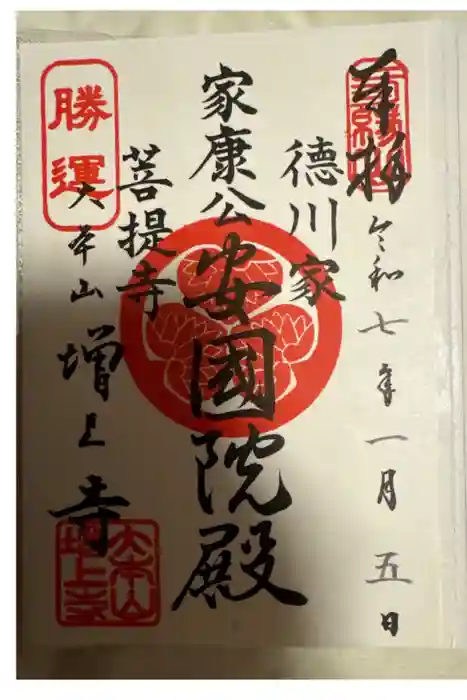 奉拝
令和七年一月五日
徳川家
家康公
安國院殿
菩提寺
勝運
大本山
増上寺
大本山
増上寺